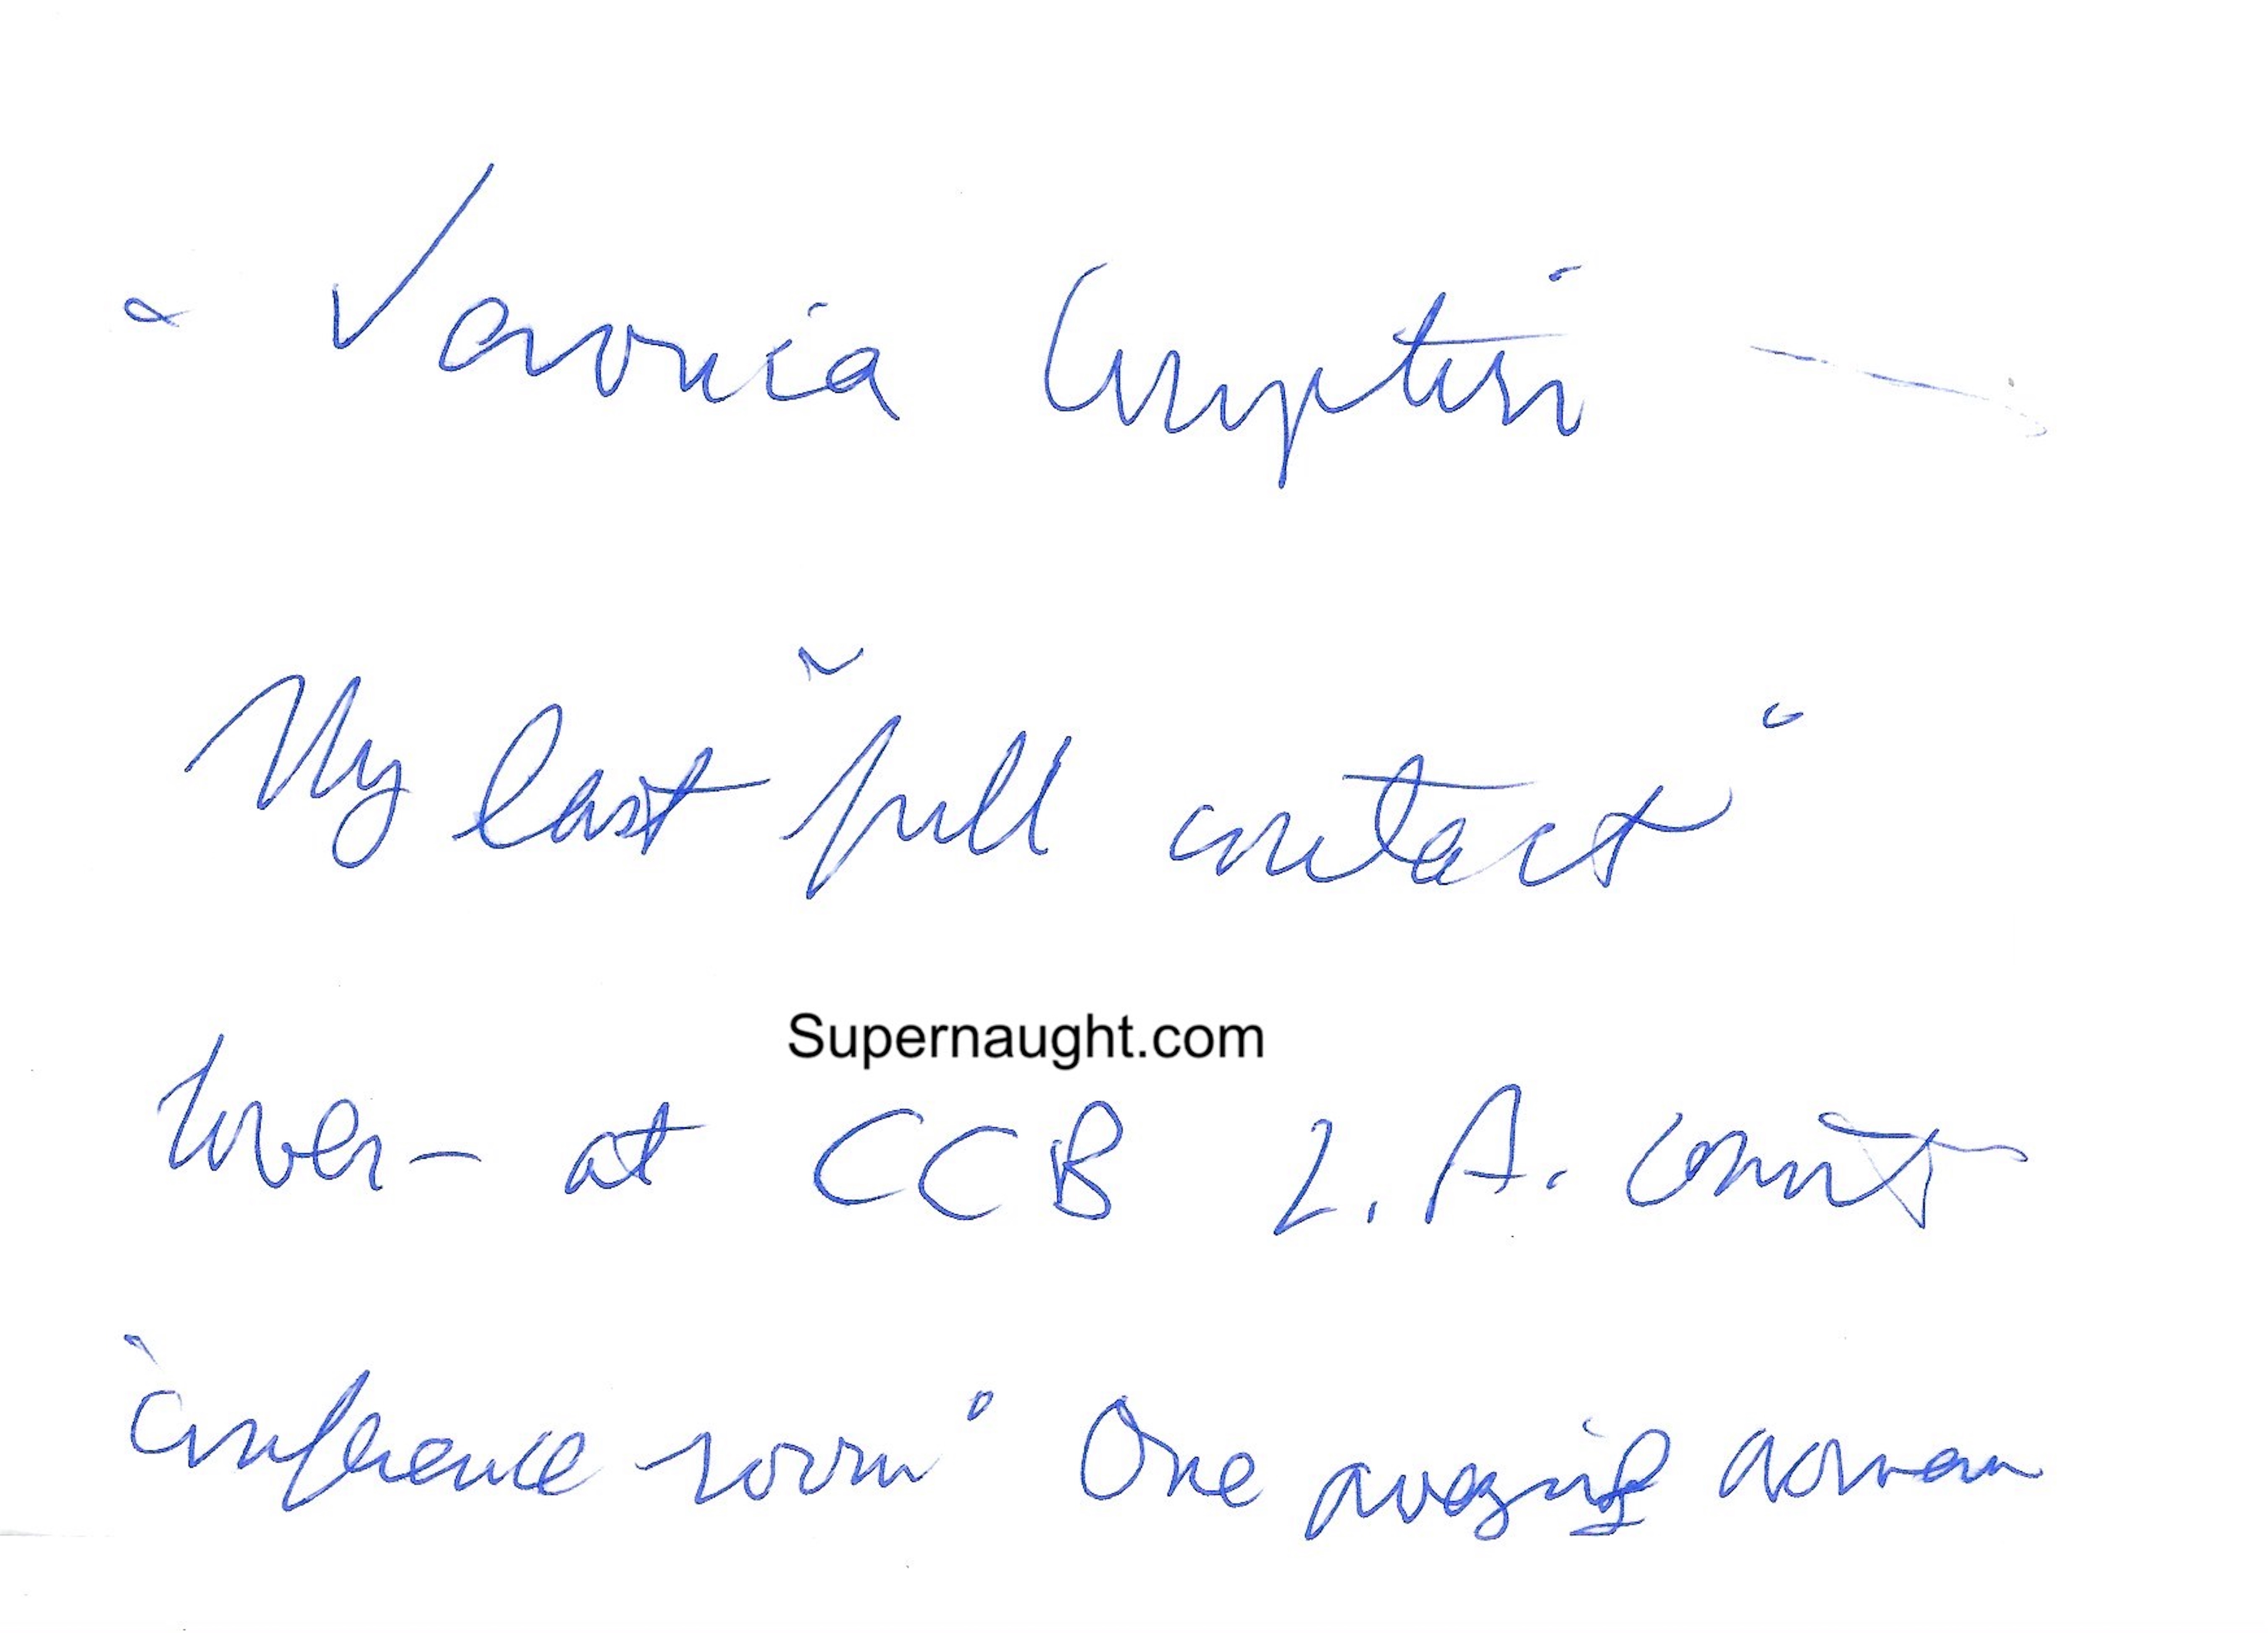 My last "full contact"
Supernaught.com
lover – at CCB L.A. court
"conference room" One amazing woman